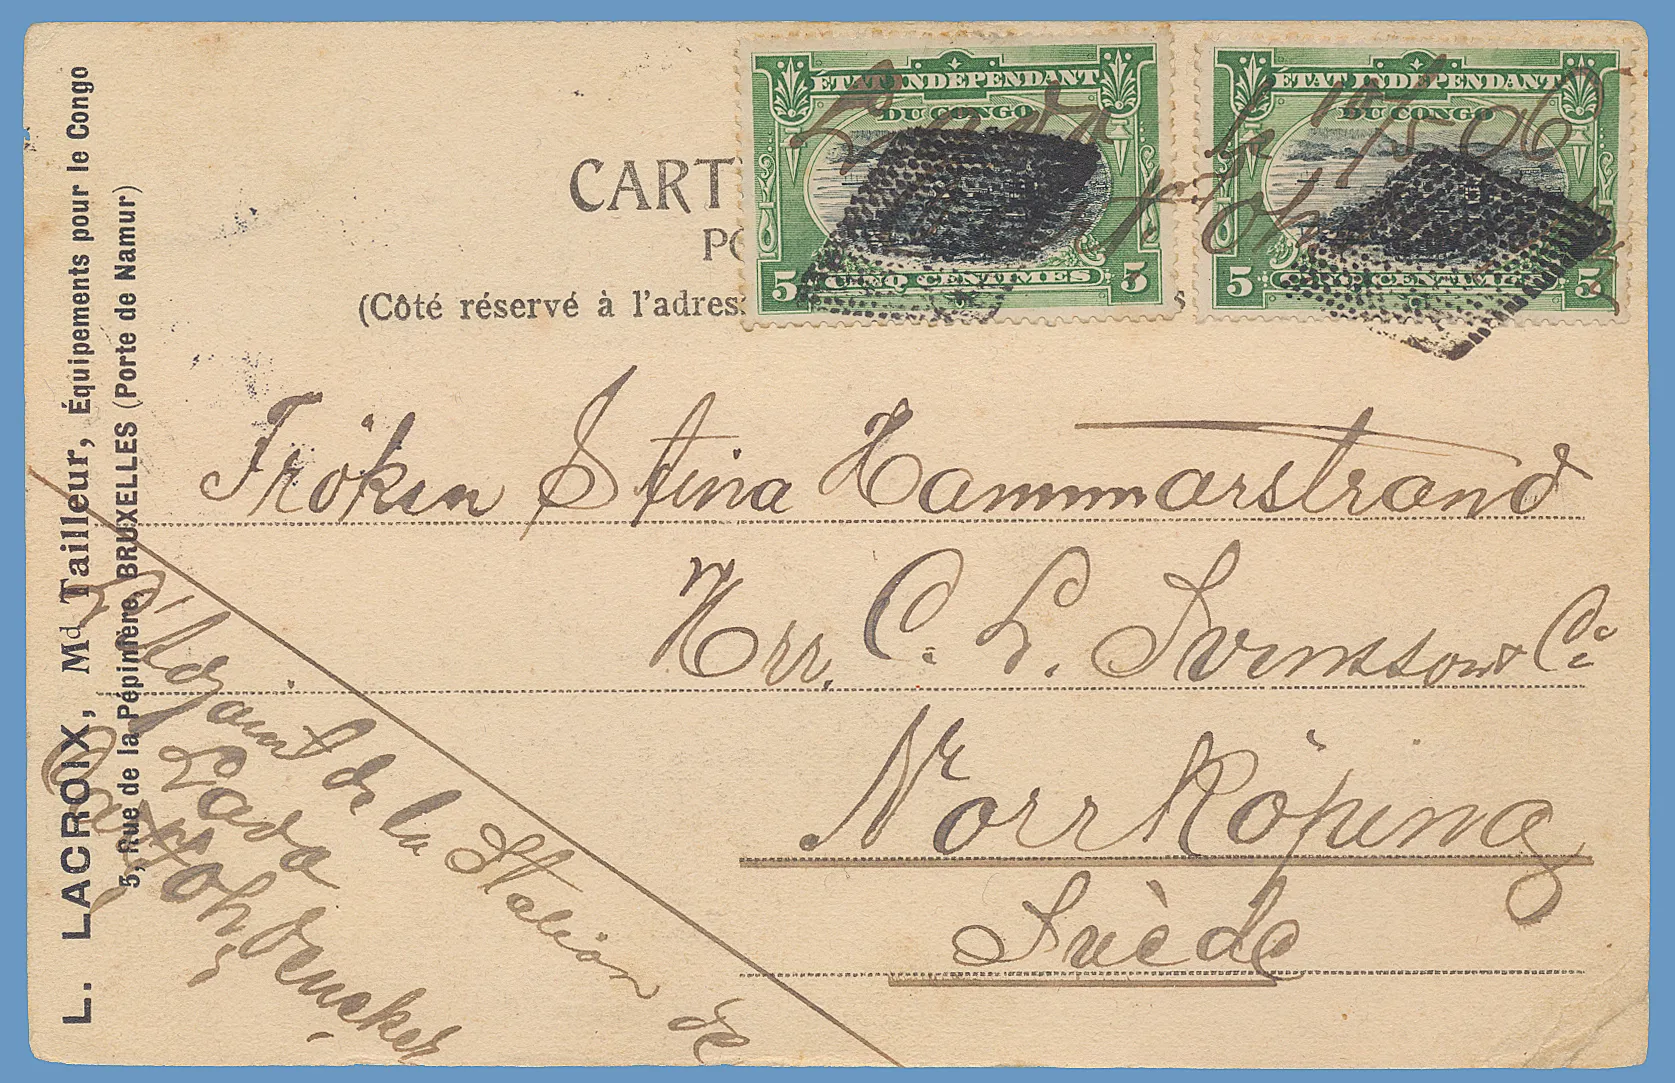 L. LACROIX, Md Tailleur, Équipements pour le Congo
5, Rue de la Pépinière, BRUXELLES (Porte de Namur)
CART
PO
(Côté réservé à l'adres
s
ÉTAT INDÉPENDANT
DU CONGO
5 CINQ CENTIMES 5
ÉTAT INDÉPENDANT
DU CONGO
5 CINQ CENTIMES 5
Lado
Fröken Stina Hammarstrand
Hrr. C. L. Svensson & Co
Norrköping
Suède
L'Adjoint de la Station de
Lado